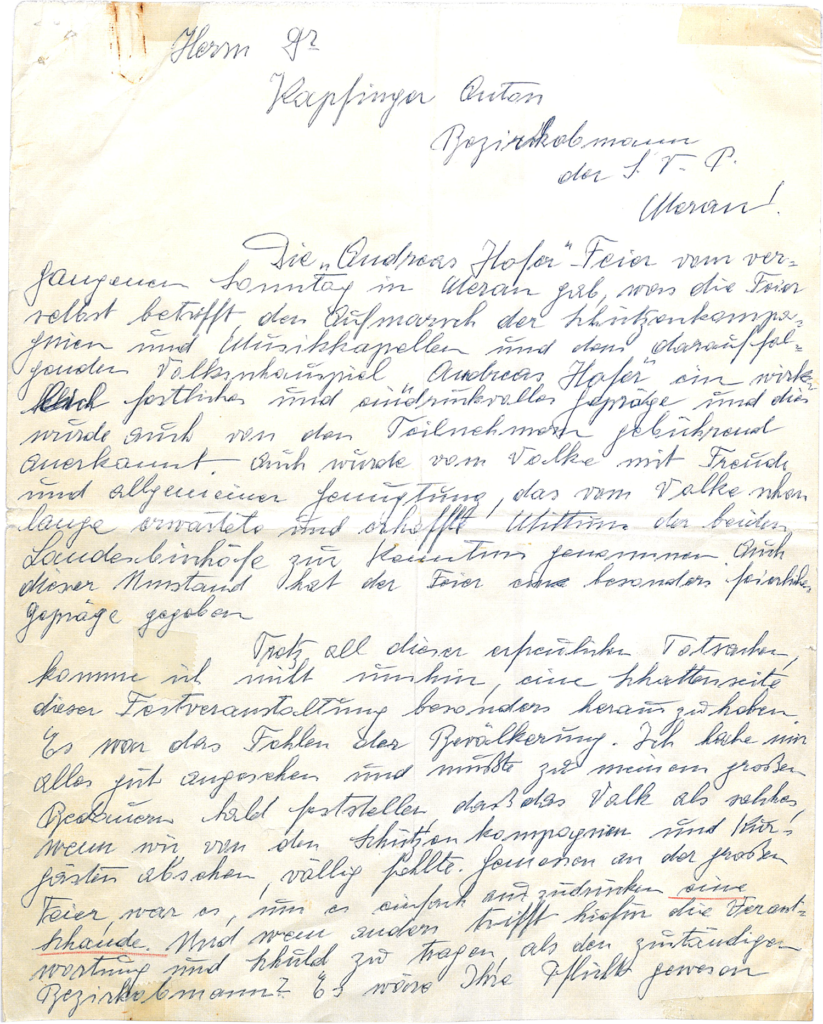 Herrn Dr
Kapfinger Anton
Bezirksobmann
der S. V. P.
Meran!
Die „Andreas Hofer"-Feier vom ver-
gangenen Sonntag in Meran gab, was die Feier
selbst betrifft, den Aufmarsch der Schützenkompa-
gnien und Musikkapellen und dem darauffol-
genden Volksschauspiel „Andreas Hofer" ein wirk-
lich festliches und eindruckvolles Gepräge und dies
wurde auch von den Teilnehmern gebührend
anerkannt. Auch wurde vom Volke mit Freude
und allgemeiner Genugtung, das vom Volke schon
lange erwartete und erhoffte Mittun der beiden
Landesbischöfe zur Kenntnis genommen. Auch
dieser Umstand hat der Feier eine besonders feierliches
Gepräge gegeben
Trotz all dieser erfreulichen Tatsachen,
komme ich nicht umhin, eine Schattenseite
dieser Festveranstaltung besonders herauszuheben.
Es war das Fehlen der Bevölkerung. Ich habe mir
alles gut angesehen und mußte zu meinem großen
Bedauern bald feststellen, daß das Volk als solches,
wenn wir von den Schützenkompagnien und Kur-
gästen absehen, völlig fehlte. Gemessen an der großen
Feier, war es, um es einfach auszudrücken eine
Schande. Und wem anders trifft hiefür die Verant-
wortung und Schuld zu tragen, als den zuständigen
Bezirksobmann? Es wäre Ihre Pflicht gewesen